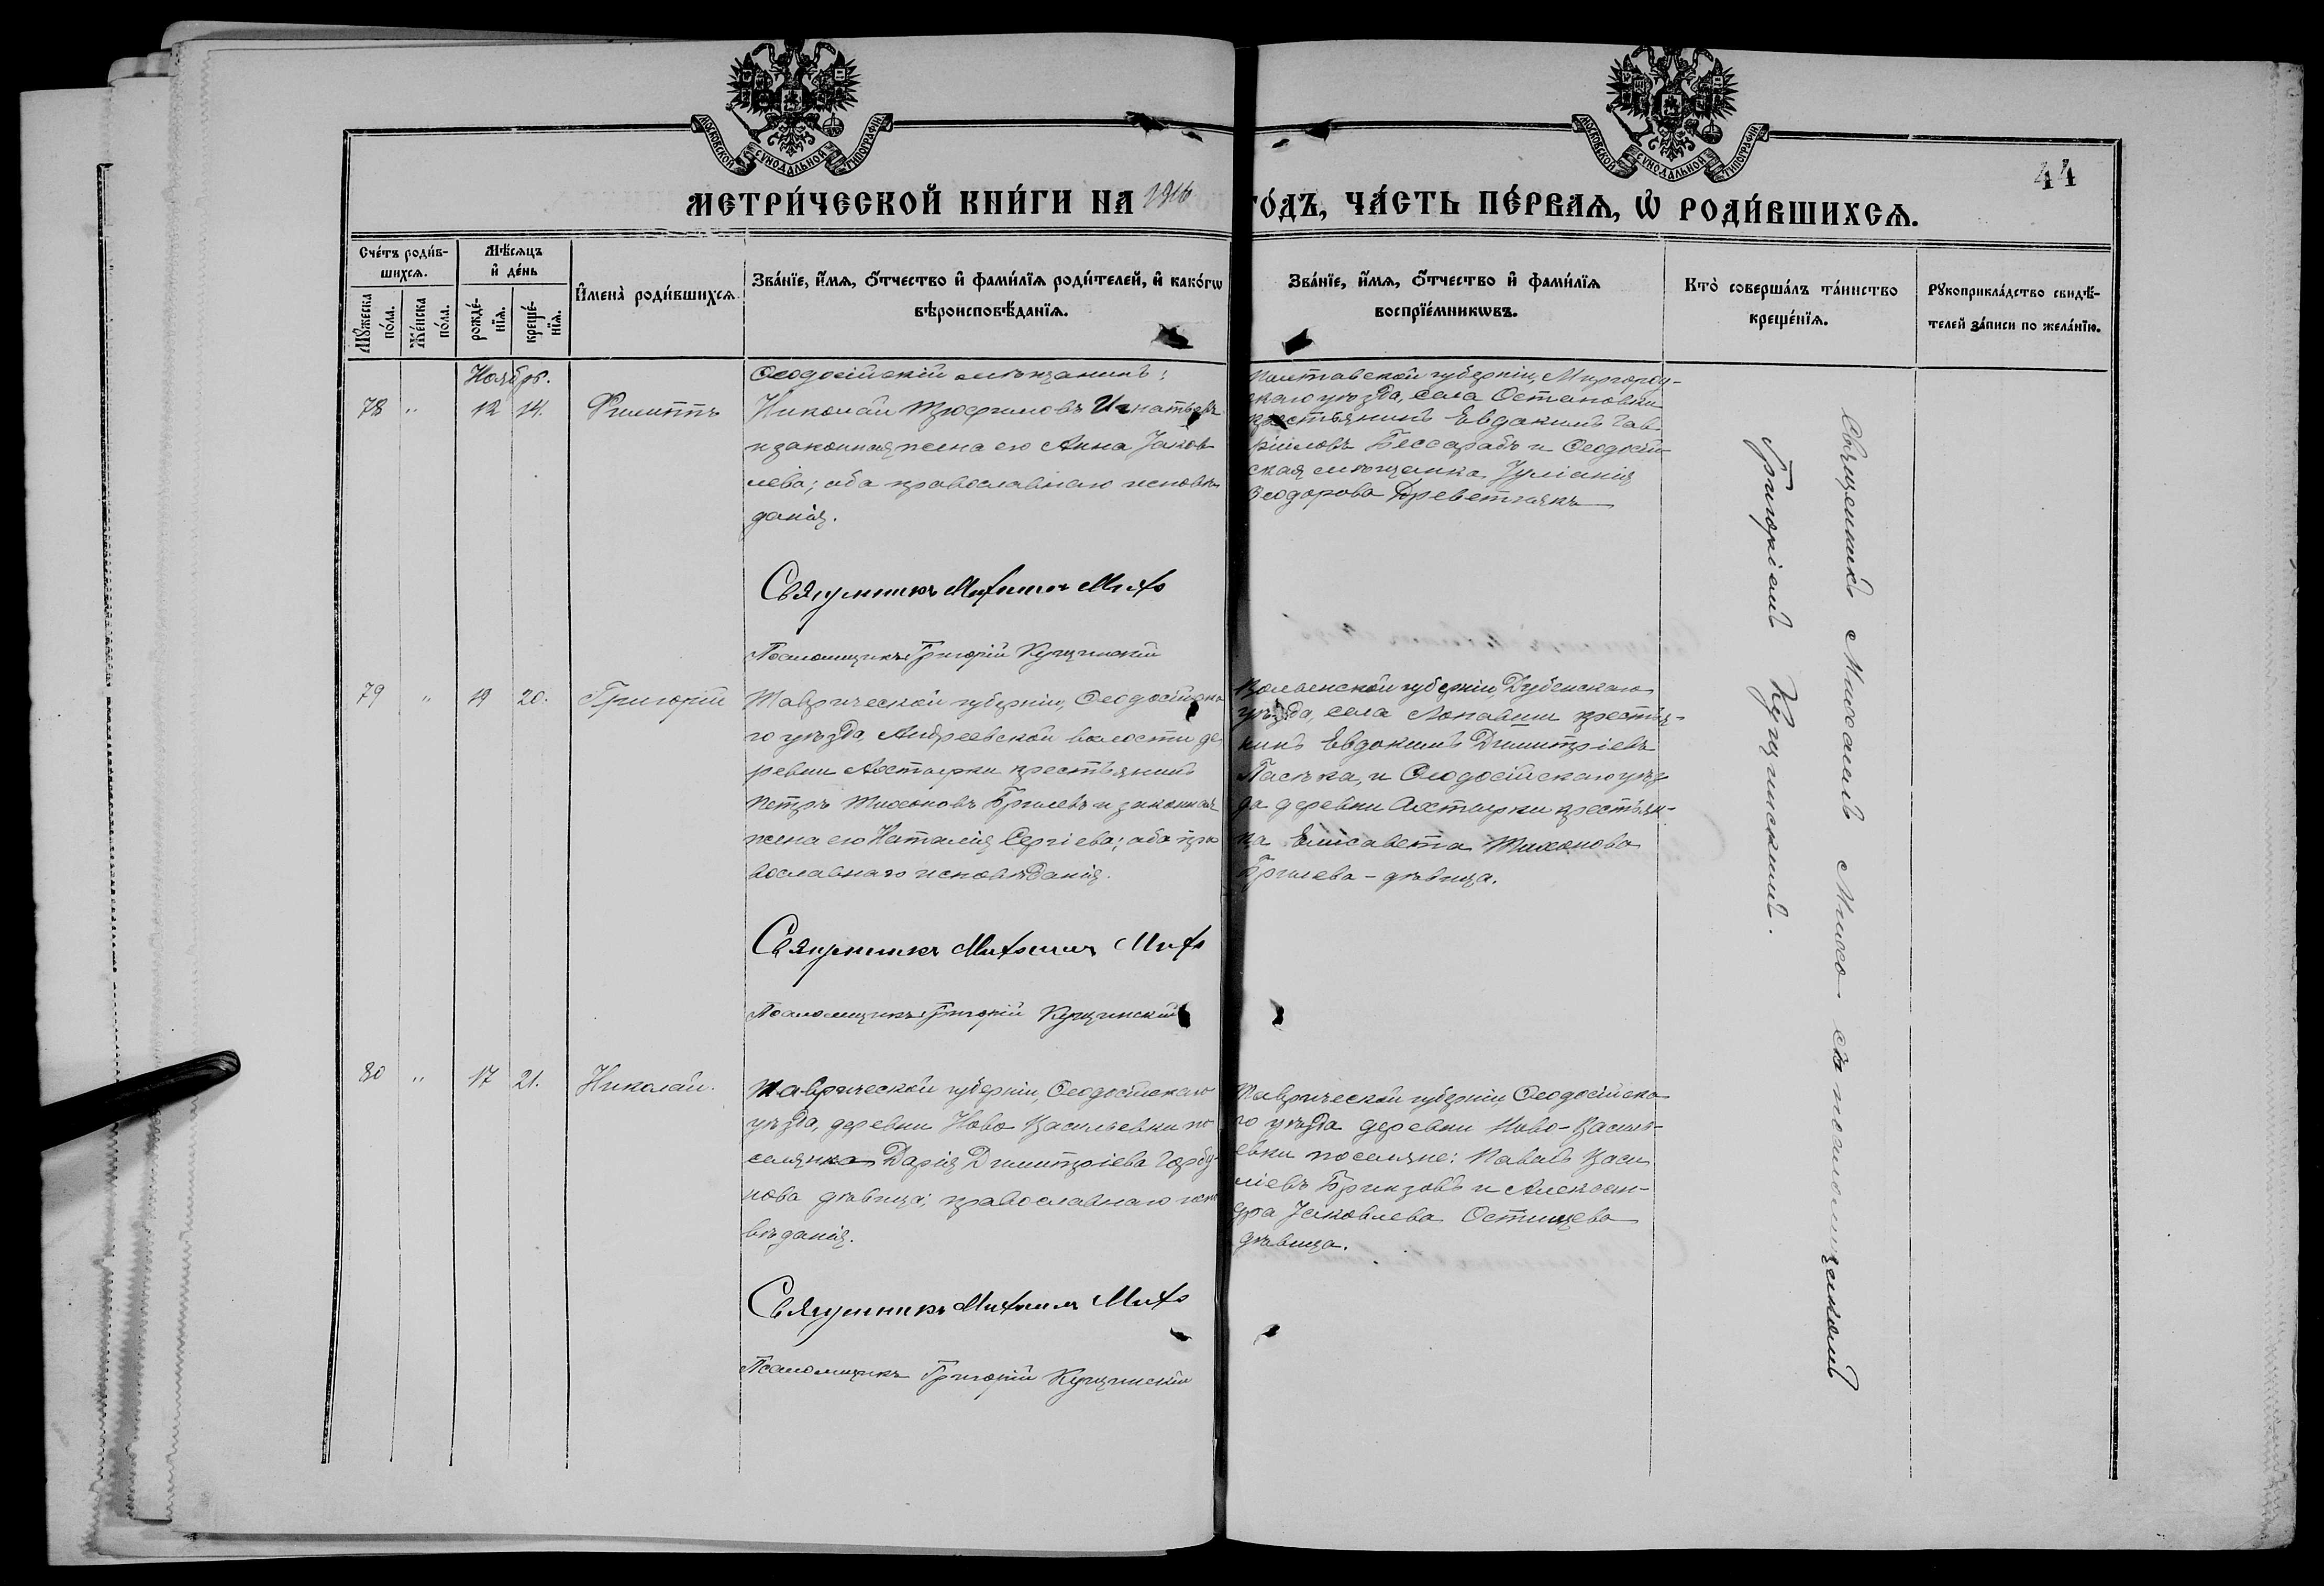 МОСКОВСКОЙ СѴНОДАЛЬНОЙ ТИПОГРАФІИ
МОСКОВСКОЙ СѴНОДАЛЬНОЙ ТИПОГРАФІИ
44
МЕТРИ́ЧЕСКОЙ КНИ́ГИ НА 1916 ГО́ДЪ, ЧА́СТЬ ПЕ́РВАЯ, Ѡ РОДИ́ВШИХСЯ.
Сче́тъ роди́в-
шихся.
Мꙋ́жеска по́ла.
Же́нска по́ла.
Мѣ́сяцъ и де́нь
рожде́-нїя.
креще́-нїя.
Имена̀ роди́вшихся.
Зва́нїе, и́мя, о́тчество и фами́лїя роди́телей, и како́гѡ
вѣроисповѣ́данїя.
Зва́нїе, и́мя, о́тчество и фами́лїя
воспрїе́мникѡвъ.
Кто̀ соверша́лъ та́инство
креще́нїя.
Рꙋкоприкла́дство свидѣ́-
телей за́писи по жела́нїю.
Ноябрь.
78 " 12 14. Филиппъ
Ѳеодосійскій мѣщанинъ:
Николай Трофимовъ Игнатьевъ
и законная жена его Анна Іаков
лева; оба православнаго исповѣ
данія.
Священникъ Михаилъ Михо
Псаломщикъ Григорій Кущинскій
Полтавской губерніи, Миргород-
скаго уѣзда, села Остаповки
крестьянинъ Евдокимъ Гав
ріиловъ Бессарабъ и Ѳеодосій-
ская мѣщанка Іуліанія
Ѳеодорова Древетнякъ
79 " 19 20. Григорій
Таврической губерніи, Ѳеодосійска
го уѣзда, Андреевской волости де
ревни Ахтырки крестьянинъ
Петръ Тихоновъ Брилевъ и законная
жена его Наталія Сергіева; оба пра
вославнаго исповѣданія.
Священникъ Михаилъ Михо
Псаломщикъ Григорій Кущинскій
Волынской губерніи, Дубенскаго
уѣзда, села Лопавши крестья-
нинъ Евдокимъ Димитріевъ
Пасѣка, и Ѳеодосійскаго уѣз
да деревни Ахтырки крестьян-
ка Елисавета Тихонова
Брилева - дѣвица.
80 " 17 21. Николай.
Таврической губерніи, Ѳеодосійскаго
уѣзда, деревни Ново Васильевки по
селянка Дарія Димитріева Горбу-
нова дѣвица; православнаго испо
вѣданія.
Священникъ Михаилъ Михо
Псаломщикъ Григорій Кущинскій
Таврической губерніи, Ѳеодосійска
го уѣзда деревни Ново-Василь-
евки поселяне: Павелъ Васи
ліевъ Бринзовъ и Алексан-
дра Іаковлева Остищева
дѣвица.
Священникъ Михаилъ Михо съ псаломщикомъ
Григоріемъ Кущинскимъ.